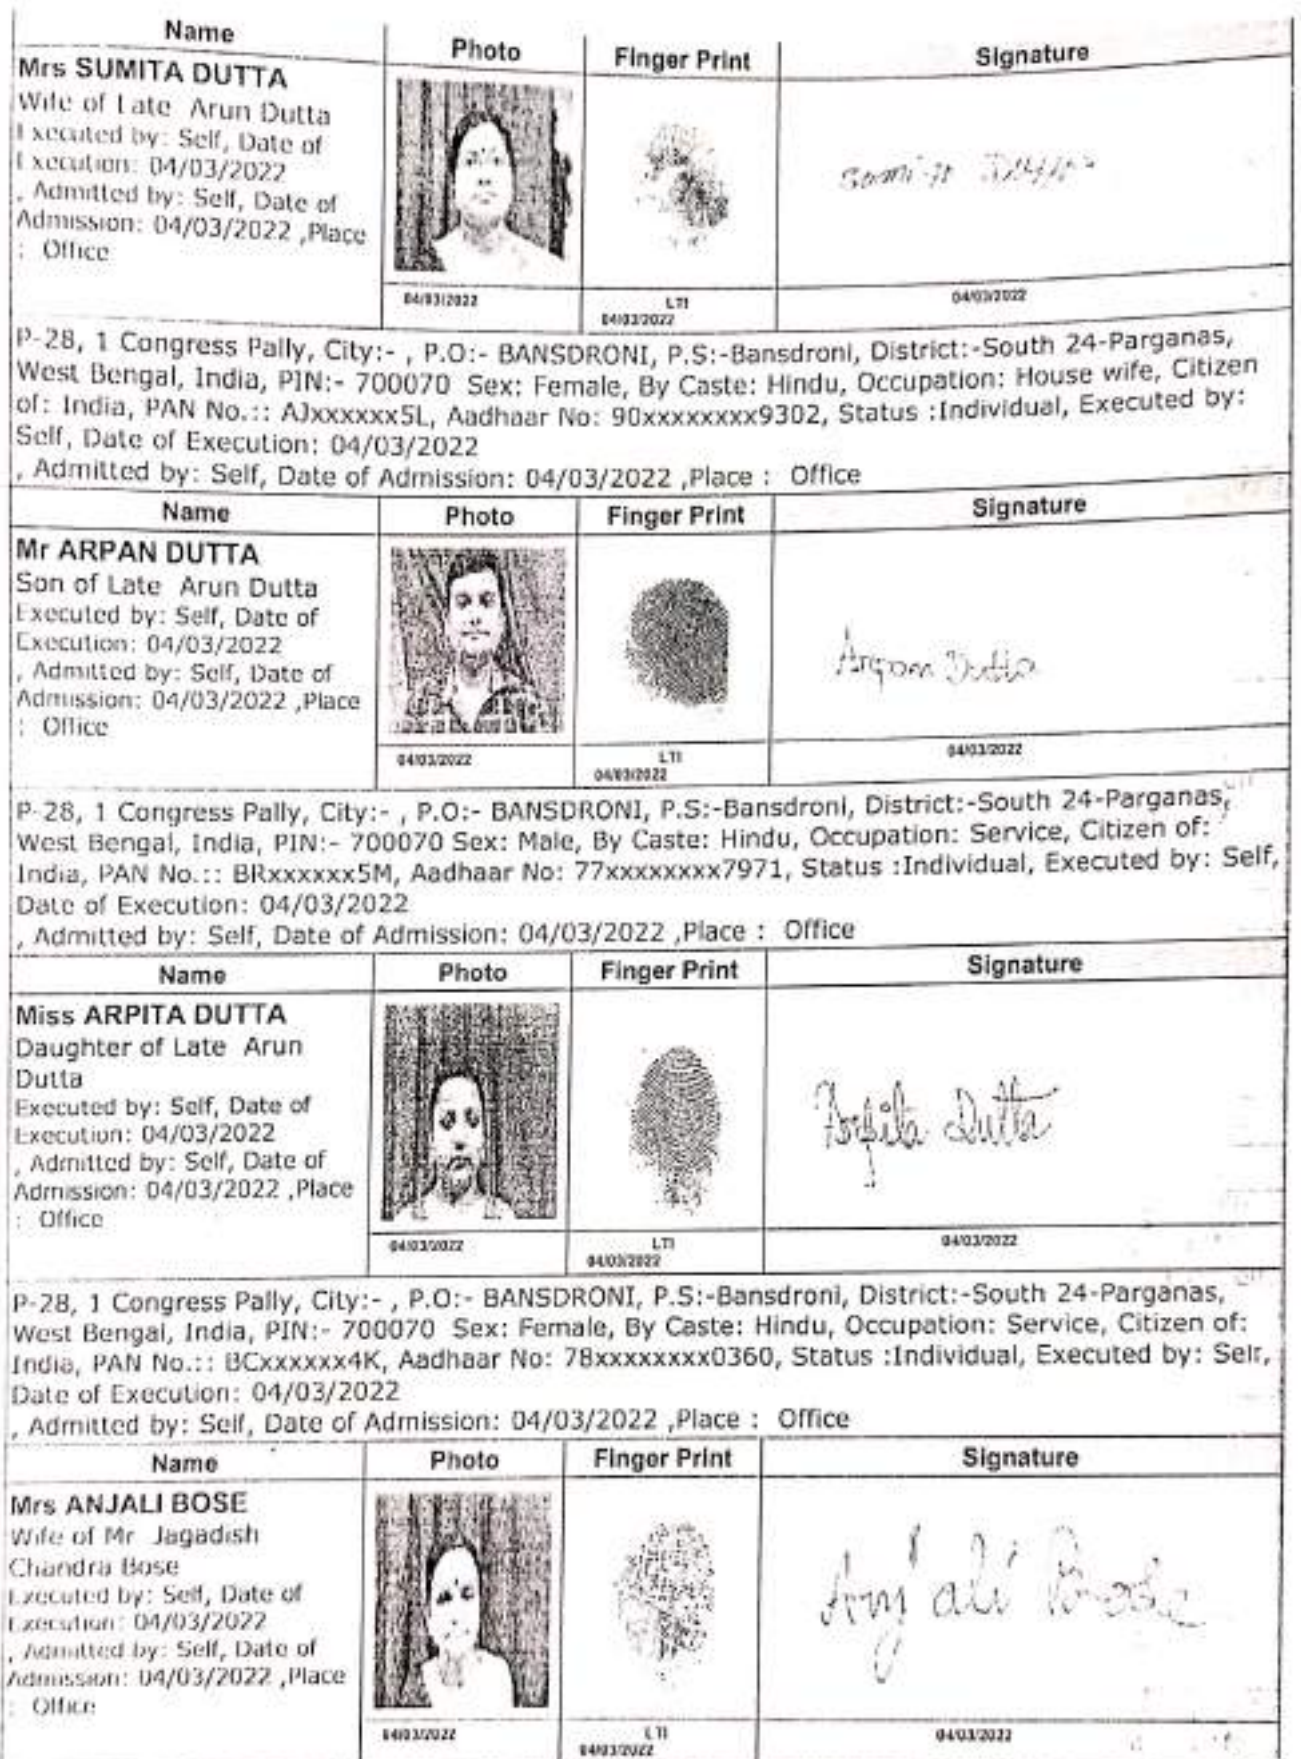 Name Photo Finger Print Signature
Mrs SUMITA DUTTA
Wife of Late Arun Dutta
Executed by: Self, Date of
Execution: 04/03/2022
, Admitted by: Self, Date of
Admission: 04/03/2022 ,Place
: Office
04/03/2022 LTI 04/03/2022
04/03/2022
P-28, 1 Congress Pally, City:- , P.O:- BANSDRONI, P.S:-Bansdroni, District:-South 24-Parganas,
West Bengal, India, PIN:- 700070 Sex: Female, By Caste: Hindu, Occupation: House wife, Citizen
of: India, PAN No.:: AJxxxxxx5L, Aadhaar No: 90xxxxxxxx9302, Status :Individual, Executed by:
Self, Date of Execution: 04/03/2022
, Admitted by: Self, Date of Admission: 04/03/2022 ,Place : Office
Name Photo Finger Print Signature
Mr ARPAN DUTTA
Son of Late Arun Dutta
Executed by: Self, Date of
Execution: 04/03/2022
, Admitted by: Self, Date of
Admission: 04/03/2022 ,Place
: Office
Arpan Dutta
04/03/2022 LTI 04/03/2022
04/03/2022
P-28, 1 Congress Pally, City:- , P.O:- BANSDRONI, P.S:-Bansdroni, District:-South 24-Parganas,
West Bengal, India, PIN:- 700070 Sex: Male, By Caste: Hindu, Occupation: Service, Citizen of:
India, PAN No.:: BRxxxxxx5M, Aadhaar No: 77xxxxxxxx7971, Status :Individual, Executed by: Self,
Date of Execution: 04/03/2022
, Admitted by: Self, Date of Admission: 04/03/2022 ,Place : Office
Name Photo Finger Print Signature
Miss ARPITA DUTTA
Daughter of Late Arun
Dutta
Executed by: Self, Date of
Execution: 04/03/2022
, Admitted by: Self, Date of
Admission: 04/03/2022 ,Place
: Office
Arpita Dutta
04/03/2022 LTI 04/03/2022
04/03/2022
P-28, 1 Congress Pally, City:- , P.O:- BANSDRONI, P.S:-Bansdroni, District:-South 24-Parganas,
West Bengal, India, PIN:- 700070 Sex: Female, By Caste: Hindu, Occupation: Service, Citizen of:
India, PAN No.:: BCxxxxxx4K, Aadhaar No: 78xxxxxxxx0360, Status :Individual, Executed by: Self,
Date of Execution: 04/03/2022
, Admitted by: Self, Date of Admission: 04/03/2022 ,Place : Office
Name Photo Finger Print Signature
Mrs ANJALI BOSE
Wife of Mr Jagadish
Chandra Bose
Executed by: Self, Date of
Execution: 04/03/2022
, Admitted by: Self, Date of
Admission: 04/03/2022 ,Place
: Office
Anjali Bose
04/03/2022 LTI 04/03/2022
04/03/2022